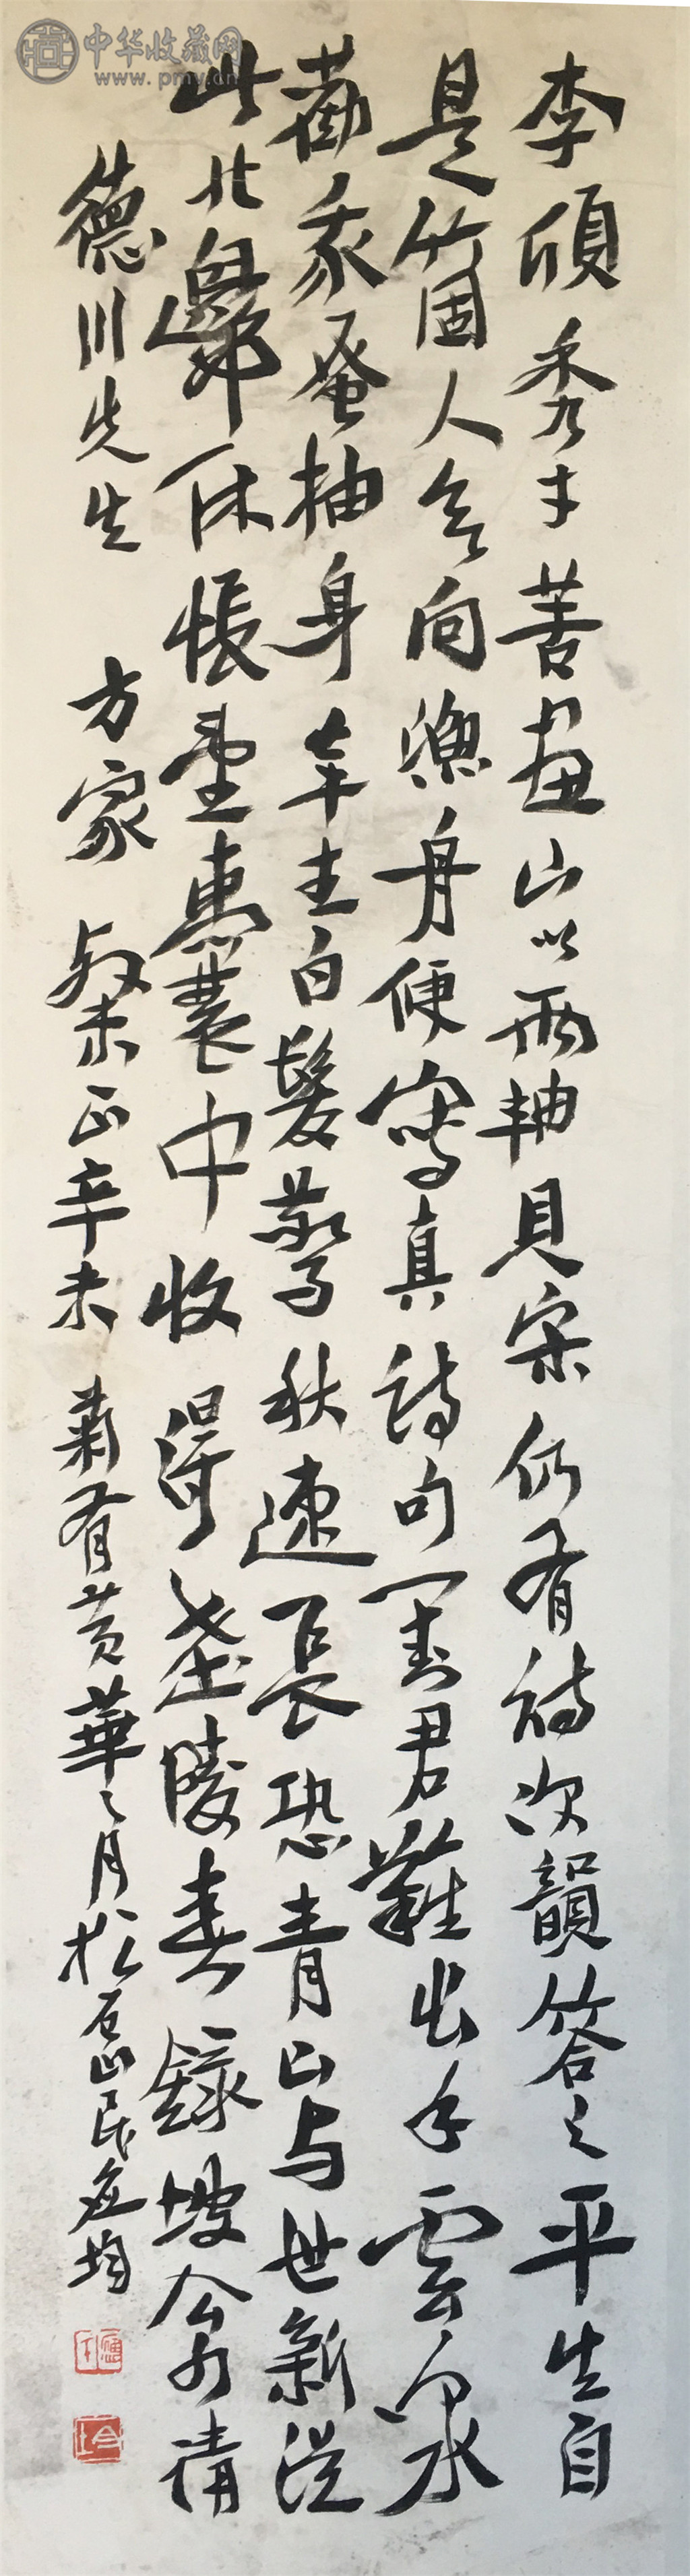 李頎秀才善畫山以兩軸見寄仍有詩次韻答之平生自
是箇人欲向漁舟便寫真詩句對君難出手雲泉
勸我蚤抽身年来白髮驚秋速長恐青山与世新從
此北歸休悵望囊中收得武陵春錄坡翁句請
德川先生 方家 粲正辛未 菊有黄華之月松石山民应均
中华收藏网
www.pmy.cn